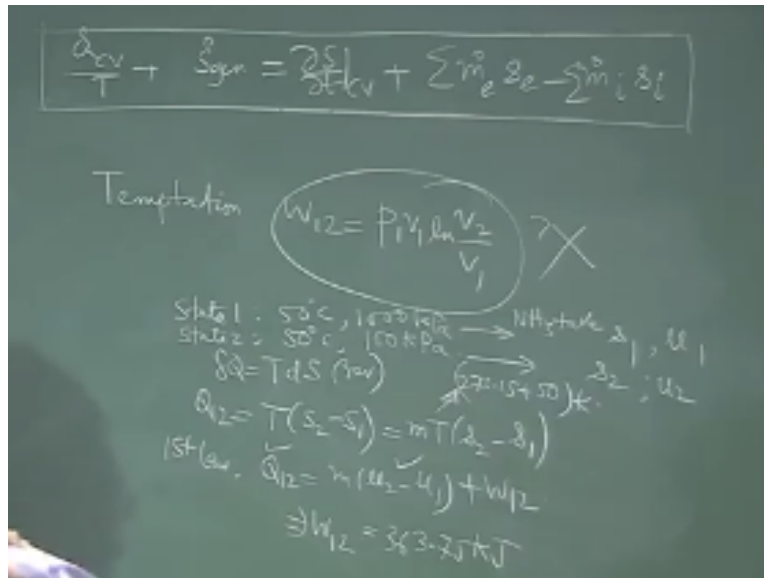 Q̇cv/T + Ṡgen = ∂S/∂t|cv + Σṁe se − Σṁi si
Temptation W12 = P1V1 ln V2/V1 ? X
State 1 : 50°C, 1000 kPa → NH3 table s1, u1
State 2 : 50°C, 150 kPa → s2, u2
δQ = TdS (rev) (273.15+50)K
Q12 = T(S2−S1) = mT(s2−s1)
1st law. Q12 = m(u2−u1) + W12
⇒ W12 = 363.75 kJ